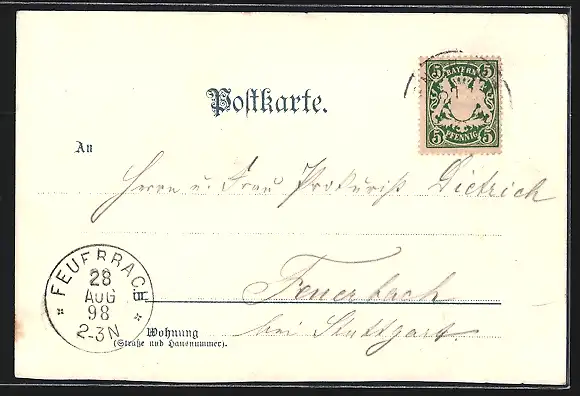 5 BAYERN 5
5 PFENNIG 5
Postkarte.
An
Herrn u. Frau Prokurist Dietrich
FEUERBACH
28
AUG
98
2-3N
in
Feuerbach
Wohnung
(Straße und Hausnummer).
bei Stuttgart.